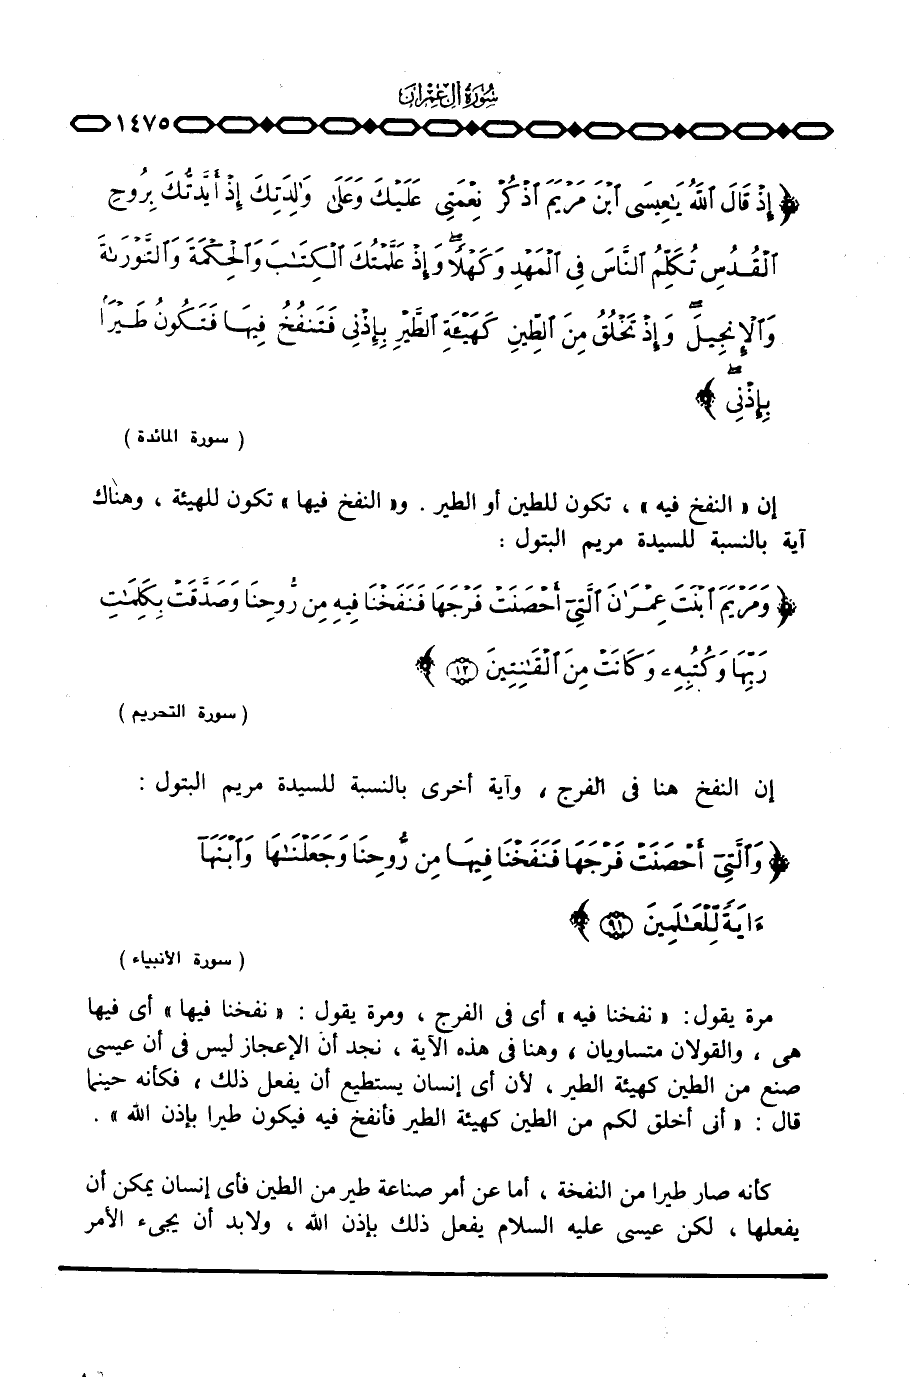 سُورَةُ آلِ عِمْرَانَ
١٤٧٥
﴿ إِذْ قَالَ ٱللَّهُ يَـٰعِيسَى ٱبْنَ مَرْيَمَ ٱذْكُرْ نِعْمَتِى عَلَيْكَ وَعَلَىٰ وَٰلِدَتِكَ إِذْ أَيَّدتُّكَ بِرُوحِ
ٱلْقُدُسِ تُكَلِّمُ ٱلنَّاسَ فِى ٱلْمَهْدِ وَكَهْلًا ۖ وَإِذْ عَلَّمْتُكَ ٱلْكِتَـٰبَ وَٱلْحِكْمَةَ وَٱلتَّوْرَىٰةَ
وَٱلْإِنجِيلَ ۖ وَإِذْ تَخْلُقُ مِنَ ٱلطِّينِ كَهَيْـَٔةِ ٱلطَّيْرِ بِإِذْنِى فَتَنفُخُ فِيهَا فَتَكُونُ طَيْرًۢا
بِإِذْنِى ۖ ﴾
( سورة المائدة )
إن « النفخ فيه » ، تكون للطين أو الطير . و« النفخ فيها » تكون للهيئة ، وهناك
آية بالنسبة للسيدة مريم البتول :
﴿ وَمَرْيَمَ ٱبْنَتَ عِمْرَٰنَ ٱلَّتِىٓ أَحْصَنَتْ فَرْجَهَا فَنَفَخْنَا فِيهِ مِن رُّوحِنَا وَصَدَّقَتْ بِكَلِمَـٰتِ
رَبِّهَا وَكُتُبِهِۦ وَكَانَتْ مِنَ ٱلْقَـٰنِتِينَ ١٢ ﴾
( سورة التحريم )
إن النفخ هنا فى الفرج ، وآية أخرى بالنسبة للسيدة مريم البتول :
﴿ وَٱلَّتِىٓ أَحْصَنَتْ فَرْجَهَا فَنَفَخْنَا فِيهَا مِن رُّوحِنَا وَجَعَلْنَـٰهَا وَٱبْنَهَآ
ءَايَةً لِّلْعَـٰلَمِينَ ٩١ ﴾
( سورة الأنبياء )
مرة يقول : « نفخنا فيه » أى فى الفرج ، ومرة يقول : « نفخنا فيها » أى فيها
هى ، والقولان متساويان ، وهنا فى هذه الآية ، نجد أن الإعجاز ليس فى أن عيسى
صنع من الطين كهيئة الطير ، لأن أى إنسان يستطيع أن يفعل ذلك ، فكأنه حينما
قال : « أنى أخلق لكم من الطين كهيئة الطير فأنفخ فيه فيكون طيرا بإذن الله » .
كأنه صار طيرا من النفخة ، أما عن أمر صناعة طير من الطين فأى إنسان يمكن أن
يفعلها ، لكن عيسى عليه السلام يفعل ذلك بإذن الله ، ولابد أن يجىء الأمر